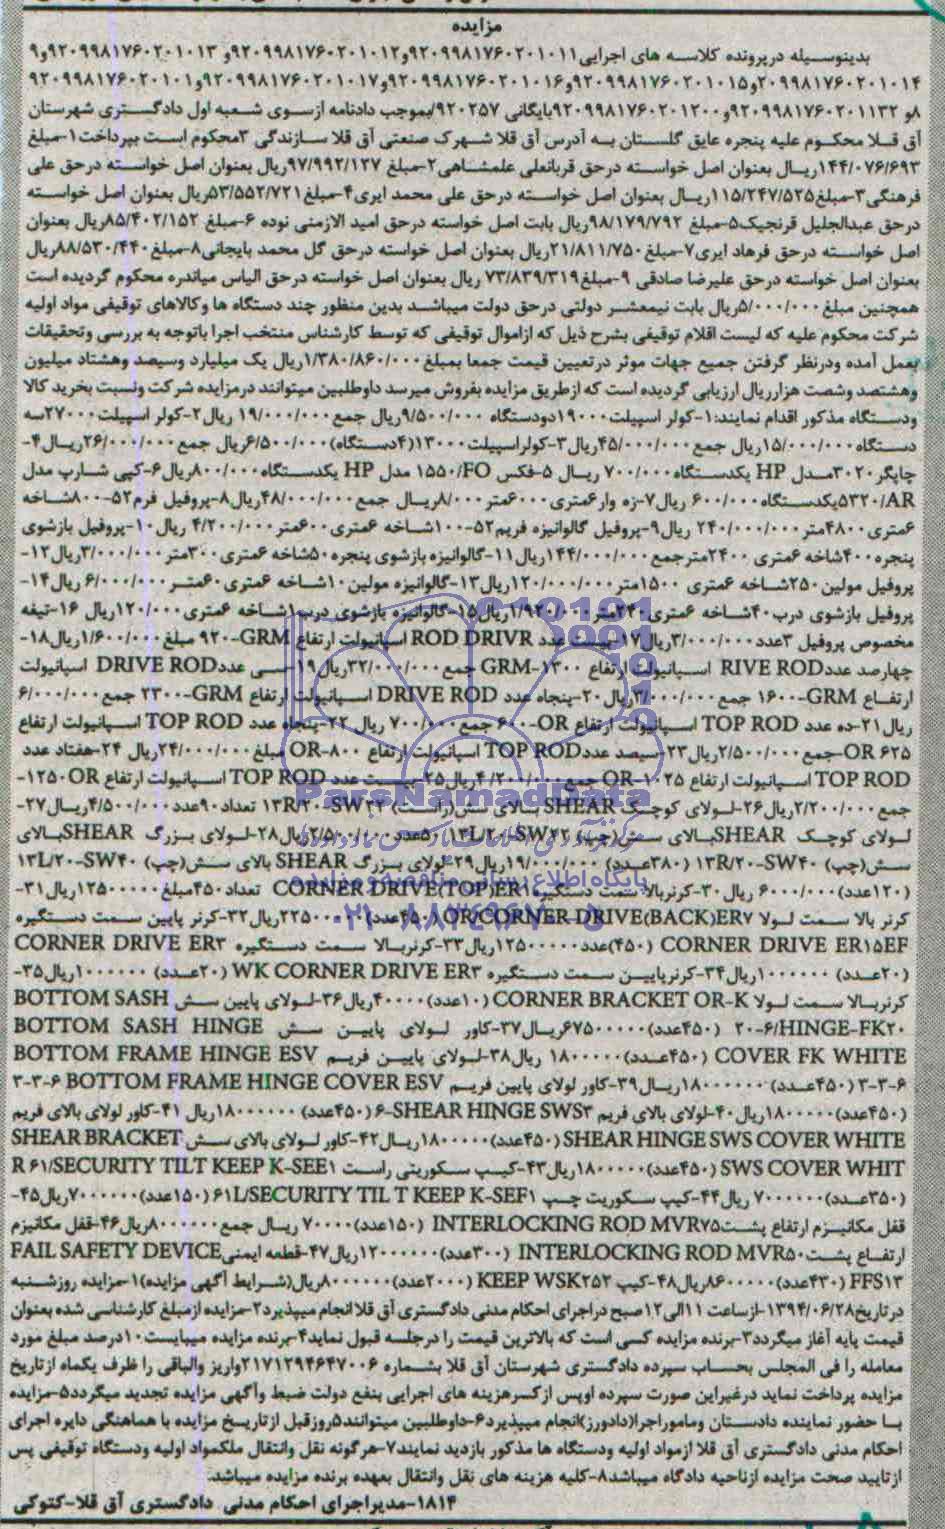 مزایده
بدینوسیله درپرونده کلاسه های اجرایی۹۲۰۹۹۸۱۷۶۰۲۰۱۰۱۱و۹۲۰۹۹۸۱۷۶۰۲۰۱۰۱۲و ۹۲۰۹۹۸۱۷۶۰۲۰۱۰۱۳و۹
۲۰۹۹۸۱۷۶۰۲۰۱۰۱۴و۹۲۰۹۹۸۱۷۶۰۲۰۱۰۱۵و۹۲۰۹۹۸۱۷۶۰۲۰۱۰۱۶و۹۲۰۹۹۸۱۷۶۰۲۰۱۰۱۷و۹۲۰۹۹۸۱۷۶۰۲۰۱۰۱
۸و ۹۲۰۹۹۸۱۷۶۰۲۰۱۱۳۲و۹۲۰۹۹۸۱۷۶۰۲۰۱۲۰۰بایگانی ۹۲۰۲۵۷بموجب دادنامه ازسوی شعبه اول دادگستری شهرستان
آق قلا محکوم علیه پنجره عایق گلستان به آدرس آق قلا شهرک صنعتی آق قلا سازندگی ۳محکوم است بپرداخت۱-مبلغ
۱۴۴/۰۷۶/۶۹۳ریال بعنوان اصل خواسته درحق قربانعلی علمشاهی۲-مبلغ ۹۷/۹۹۲/۱۲۷ریال بعنوان اصل خواسته درحق علی
فرهنگی۳-مبلغ۱۱۵/۲۴۷/۵۲۵ریال بعنوان اصل خواسته درحق علی محمد ایری۴-مبلغ۵۳/۵۵۲/۷۲۱ریال بعنوان اصل خواسته
درحق عبدالجلیل قرنجیک۵-مبلغ ۹۸/۱۷۹/۷۹۲ریال بابت اصل خواسته درحق امید الازمنی نوده ۶-مبلغ ۸۵/۴۰۲/۱۵۲ریال بعنوان
اصل خواسته درحق فرهاد ایری۷-مبلغ۲۱/۸۱۱/۷۵۰ریال بعنوان اصل خواسته درحق گل محمد بایجانی۸-مبلغ۸۸/۵۳۰/۴۴۰ریال
بعنوان اصل خواسته درحق علیرضا صادقی ۹-مبلغ۷۳/۸۳۹/۳۱۹ ریال بعنوان اصل خواسته درحق الیاس میاندره محکوم گردیده است
همچنین مبلغ۵/۰۰۰/۰۰۰ریال بابت نیمعشر دولتی درحق دولت میباشد بدین منظور چند دستگاه ها وکالاهای توقیفی مواد اولیه
شرکت محکوم علیه که لیست اقلام توقیفی بشرح ذیل که ازاموال توقیفی که توسط کارشناس منتخب اجرا باتوجه به بررسی وتحقیقات
بعمل آمده ودرنظر گرفتن جمیع جهات موثر درتعیین قیمت جمعا بمبلغ۱/۳۸۰/۸۶۰/۰۰۰ریال یک میلیارد وسیصد وهشتاد میلیون
وهشتصد وشصت هزارریال ارزیابی گردیده است که ازطریق مزایده بفروش میرسد داوطلبین میتوانند درمزایده شرکت ونسبت بخرید کالا
ودستگاه مذکور اقدام نمایند:۱-کولر اسپیلت۱۹۰۰۰دودستگاه ۹/۵۰۰/۰۰۰ریال جمع۱۹/۰۰۰/۰۰۰ ریال۲-کولر اسپیلت۲۷۰۰۰سه
دستگاه۱۵/۰۰۰/۰۰۰ریال جمع ۴۵/۰۰۰/۰۰۰ریال۳-کولراسپیلت۱۳۰۰۰(۴دستگاه)۶/۵۰۰/۰۰۰ریال جمع۲۶/۰۰۰/۰۰۰ریال۴-
چاپگر۳۰۲۰مدل HP یکدستگاه۷۰۰/۰۰۰ ریال ۵-فکس ۱۵۵۰/FO مدل HP یکدستگاه۸۰۰/۰۰۰ریال۶-کپی شارپ مدل
۵۳۲۰/ARیکدستگاه۶۰۰/۰۰۰ ریال۷-زه وار۶متری۶۰۰۰متر ۸/۰۰۰ریال جمع۴۸/۰۰۰/۰۰۰ریال۸-پروفیل فرم۵۲-۸۰۰شاخه
۶متری۴۸۰۰متر ۲۴۰/۰۰۰/۰۰۰ ریال۹-پروفیل گالوانیزه فریم۵۲-۱۰۰شاخه ۶متری۶۰۰متر۴/۲۰۰/۰۰۰ ریال۱۰-پروفیل بازشوی
پنجره۴۰۰شاخه ۶متری ۲۴۰۰مترجمع۱۴۴/۰۰۰/۰۰۰ریال۱۱-گالوانیزه بازشوی پنجره۵۰شاخه ۶متری۳۰۰متر۳/۰۰۰/۰۰۰ریال۱۲-
پروفیل مولین۲۵۰شاخه ۶متری ۱۵۰۰متر۱۲۰/۰۰۰/۰۰۰ریال۱۳-گالوانیزه مولین۱۰شاخه ۶متری۶۰متر۶/۰۰۰/۰۰۰ ریال۱۴-
پروفیل بازشوی درب۴۰شاخه ۶متری۲۴۰متر۱/۹۲۰/۰۰۰ریال۱۵-گالوانیزه بازشوی درب۱شاخه ۶متری۱۲۰/۰۰۰ریال ۱۶-تیغه
مخصوص پروفیل ۳عدد۳/۰۰۰/۰۰۰ریال۱۷-بیست عدد ROD DRIVR اسپانیولت ارتفاع ۹۲۰-GRM مبلغ۱/۶۰۰/۰۰۰ریال۱۸-
چهارصد عددRIVE ROD اسپانیولت ارتفاع ۱۳۰۰-GRM جمع۳۲/۰۰۰/۰۰۰ریال۱۹-سی عددDRIVE ROD اسپانیولت
ارتفاع ۱۶۰۰-GRM جمع۳/۰۰۰/۰۰۰ریال۲۰-پنجاه عدد DRIVE ROD اسپانیولت ارتفاع ۲۳۰۰-GRM جمع۶/۰۰۰/۰۰۰
ریال۲۱-ده عدد TOP ROD اسپانیولت ارتفاع ۶۰۰-OR جمع۷۰۰/۰۰۰ ریال۲۲-پنجاه عدد TOP ROD اسپانیولت ارتفاع
OR ۶۲۵-جمع۲/۵۰۰/۰۰۰ریال۲۳-سیصد عددTOP ROD اسپانیولت ارتفاع ۸۰۰-OR مبلغ۲۴/۰۰۰/۰۰۰ریال ۲۴-هفتاد عدد
TOP ROD اسپانیولت ارتفاع ۱۰۲۵-OR جمع۴/۲۰۰/۰۰۰ریال۲۵-بیست عدد TOP ROD اسپانیولت ارتفاع ۱۲۵۰OR-
جمع۲/۲۰۰/۰۰۰ریال۲۶-لولای کوچک SHEAR بالای سش(راست) ۱۳R/۲۰-SW۲۲ تعداد۹۰عدد۴/۵۰۰/۰۰۰ریال۲۷-
لولای کوچک SHEARبالای سش(چپ) ۱۳L/۲۰-SW۲۲ ۵۰عدد۲/۵۰۰/۰۰۰ریال۲۸-لولای بزرگ SHEARبالای
سش(چپ) ۱۳R/۲۰-SW۴۰ (۳۸۰عدد) ۱۹/۰۰۰/۰۰۰ریال۲۹-لولای بزرگ SHEAR بالای سش(چپ) ۱۳L/۲۰-SW۴۰
(۱۲۰عدد)۶/۰۰۰/۰۰۰ ریال۳۰-کرنربالا سمت دستگیرهCORNER DRIVE(TOP)ER۱ تعداد۴۵۰مبلغ۱۲۵۰۰۰۰۰ریال۳۱-
کرنر بالا سمت لولا OR/CORNER DRIVE(BACK)ER۷ (۴۵۰عدد)۲۲۵۰۰۰۰۰ریال۳۲-کرنر پایین سمت دستگیره
CORNER DRIVE ER۱۵EF (۴۵۰)عدد۱۲۵۰۰۰۰۰ریال۳۳-کرنربالا سمت دستگیره CORNER DRIVE ER۳
(۲۰عدد) ۱۰۰۰۰۰۰ریال۳۴-کرنرپایین سمت دستگیره WK CORNER DRIVE ER۳ (۲۰عدد) ۱۰۰۰۰۰۰ریال۳۵-
کرنربالا سمت لولا CORNER BRACKET OR-K (۱۰عدد)۴۰۰۰۰ریال۳۶-لولای پایین سش BOTTOM SASH
۲۰-۶/HINGE-FK۲۰ (۴۵۰عدد)۶۷۵۰۰۰۰ریال۳۷-کاور لولای پایین سش BOTTOM SASH HINGE
COVER FK WHITE (۴۵۰عدد)۱۸۰۰۰۰۰ ریال۳۸-لولای پایین فریم BOTTOM FRAME HINGE ESV
۳-۳-۶ (۴۵۰عدد) ۱۸۰۰۰۰۰۰ریال۳۹-کاور لولای پایین فریم BOTTOM FRAME HINGE COVER ESV ۳-۳-۶
(۴۵۰عدد)۱۸۰۰۰۰۰ریال۴۰-لولای بالای فریم ۶-SHEAR HINGE SWS۳ (۴۵۰عدد) ۱۸۰۰۰۰۰۰ریال ۴۱-کاور لولای بالای فریم
SHEAR HINGE SWS COVER WHITE (۴۵۰عدد)۱۸۰۰۰۰۰ریال۴۲-کاور لولای بالای سش SHEAR BRACKET
SWS COVER WHIT (۴۵۰عدد)۱۸۰۰۰۰۰ریال۴۳-کیپ سکوریتی راست R۶۱/SECURITY TILT KEEP K-SEE۱
(۳۵۰عدد)۷۰۰۰۰۰۰ ریال۴۴-کیپ سکوریت چپ ۶۱L/SECURITY TIL T KEEP K-SEF۱ (۱۵۰عدد)۷۰۰۰۰۰۰ریال۴۵-
قفل مکانیزم ارتفاع پشت۷۵INTERLOCKING ROD MVR (۱۵۰عدد)۷۰۰۰۰ ریال جمع۸۰۰۰۰۰۰ریال۴۶-قفل مکانیزم
ارتفاع پشت۵۰INTERLOCKING ROD MVR (۳۰۰عدد)۱۲۰۰۰۰۰۰ریال۴۷-قطعه ایمنیFAIL SAFETY DEVICE
FFS۱۳ (۴۳۰عدد)۸۶۰۰۰۰۰ریال۴۸-کیپ KEEP WSK۲۵۲ (۲۰۰۰عدد)۸۰۰۰۰۰۰ریال(شرایط آگهی مزایده)۱-مزایده روزشنبه
درتاریخ۱۳۹۴/۰۶/۲۸-ازساعت ۱۱الی۱۲صبح دراجرای احکام مدنی دادگستری آق قلا انجام میپذیرد۲-مزایده ازمبلغ کارشناسی شده بعنوان
قیمت پایه آغاز میگردد۳-برنده مزایده کسی است که بالاترین قیمت را درجلسه قبول نماید۴-برنده مزایده میبایست۱۰درصد مبلغ مورد
معامله را فی المجلس بحساب سپرده دادگستری شهرستان آق قلا بشماره ۲۱۷۱۲۹۴۶۴۷۰۰۶واریز والباقی را ظرف یکماه ازتاریخ
مزایده پرداخت نماید درغیراین صورت سپرده اوپس ازکسرهزینه های اجرایی بنفع دولت ضبط وآگهی مزایده تجدید میگردد۵-مزایده
با حضور نماینده دادستان وماموراجرا(دادورز)انجام میپذیرد۶-داوطلبین میتوانند۵روزقبل ازتاریخ مزایده با هماهنگی دایره اجرای
احکام مدنی دادگستری آق قلا ازمواد اولیه ودستگاه ها مذکور بازدید نمایند۷-هرگونه نقل وانتقال ملکمواد اولیه ودستگاه توقیفی پس
ازتایید صحت مزایده ازناحیه دادگاه میباشد۸-کلیه هزینه های نقل وانتقال بعهده برنده مزایده میباشد.
۱۸۱۴-مدیراجرای احکام مدنی دادگستری آق قلا-کتوکی
ParsNamadData
پایگاه اطلاع رسانی مناقصه و مزایده